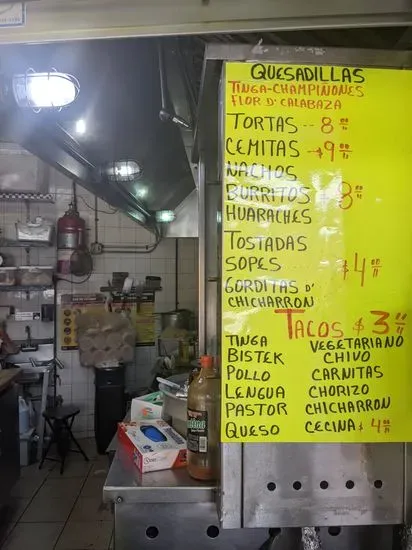 QUESADILLAS
TINGA-CHAMPIÑONES
FLOR D' CALABAZA
TORTAS -- 8.00
CEMITAS -$9.00
NACHOS
BURRITOS $8.00
HUARACHES
TOSTADAS
SOPES -- $4.00
GORDITAS D'
CHICHARRON
TACOS $3.00
TINGA VEGETARIANO
BISTEK CHIVO
POLLO CARNITAS
LENGUA CHORIZO
PASTOR CHICHARRON
QUESO CECINA $4.00